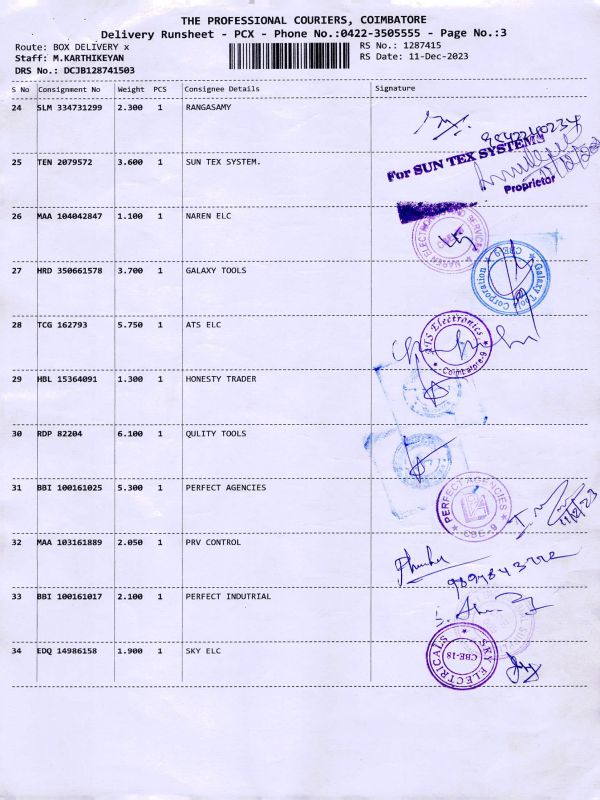 THE PROFESSIONAL COURIERS, COIMBATORE
Delivery Runsheet - PCX - Phone No.:0422-3505555 - Page No.:3
Route: BOX DELIVERY x
RS No.: 1287415
Staff: M.KARTHIKEYAN
RS Date: 11-Dec-2023
DRS No.: DCJB128741503
S No Consignment No Weight PCS Consignee Details Signature
24 SLM 334731299 2.300 1 RANGASAMY
25 TEN 2079572 3.600 1 SUN TEX SYSTEM.
For SUN TEX SYSTEMS
Proprietor
26 MAA 104042847 1.100 1 NAREN ELC
27 HRD 350661578 3.700 1 GALAXY TOOLS
Galaxy Tools Corporation CBE-9
28 TCG 162793 5.750 1 ATS ELC
ATS Electronics
Coimbatore-9
29 HBL 15364091 1.300 1 HONESTY TRADER
30 RDP 82204 6.100 1 QULITY TOOLS
31 BBI 100161025 5.300 1 PERFECT AGENCIES
PERFECT AGENCIES
CBE-9
11/12/23
32 MAA 103161889 2.050 1 PRV CONTROL
33 BBI 100161017 2.100 1 PERFECT INDUTRIAL
34 EDQ 14986158 1.900 1 SKY ELC
SKY ELECTRICALS
CBE-18